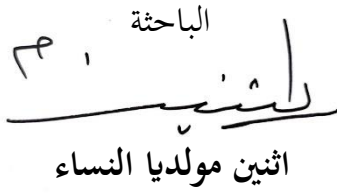 الباحثة
اثنين مولديا النساء